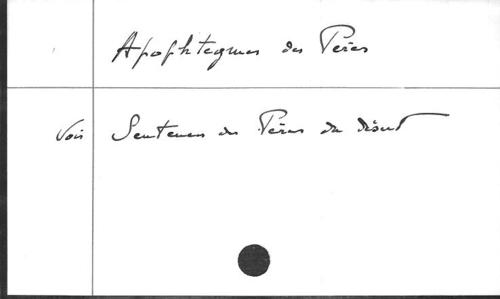 Apophtegmes des Pères
Voir Sentences des Pères du désert